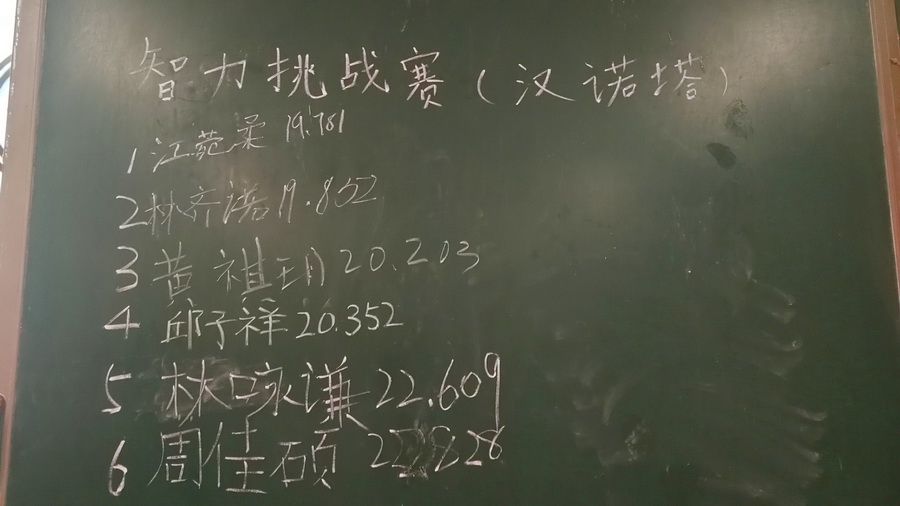 智力挑战赛(汉诺塔)
1 江菀柔 19.781
2 林齐诺 19.852
3 黄祺玥 20.203
4 邱子祥 20.352
5 林咏谦 22.609
6 周佳硕 22.828